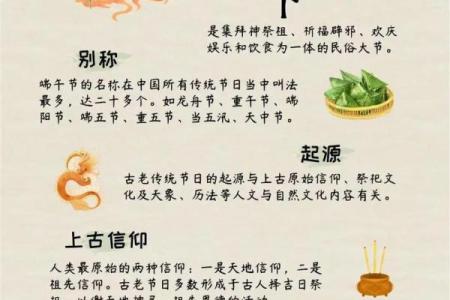 是集拜神祭祖、祈福辟邪、欢庆
娱乐和饮食为一体的民俗大节。
别称
端午节的名称在中国所有传统节日当中叫法
最多，达二十多个。如龙舟节、重午节、端
阳节、端五节、重五节、当五汛、天中节。
起源
古老传统节日的起源与上古原始信仰、祭祀文
化及天象、历法等人文与自然文化内容有关。
上古信仰
人类最原始的两种信仰：一是天地信仰，二是
祖先信仰。古老节日多数形成于古人择吉日祭